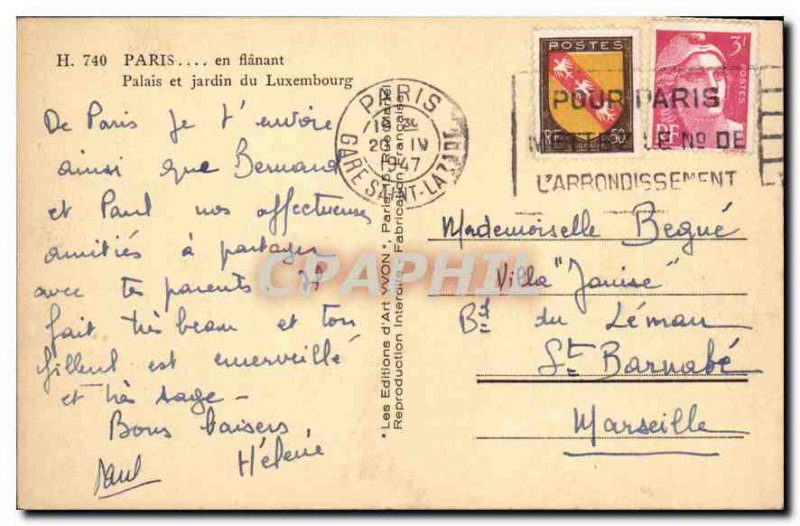 H. 740 PARIS.... en flânant
Palais et jardin du Luxembourg
De Paris je t'envoie
ainsi que Bernard
et Paul nos affectueuses
amitiés à partager
avec tes parents. Il
fait très beau et ton
filleul est emerveillé
et très sage -
Bons baisers
Hélène
Paul
"Les Editions d'Art YVON", Paris
Reproduction Interdite - Fabrication Française
PARIS
20 IV
1947
GARE SAINT-LAZARE
POSTES
RF
3F
POSTES
RF
POUR PARIS
METTRE LE No DE
L'ARRONDISSEMENT
Mademoiselle Begué
Villa "Janise"
Bd du Léman
St Barnabé
Marseille
CPAPHIL